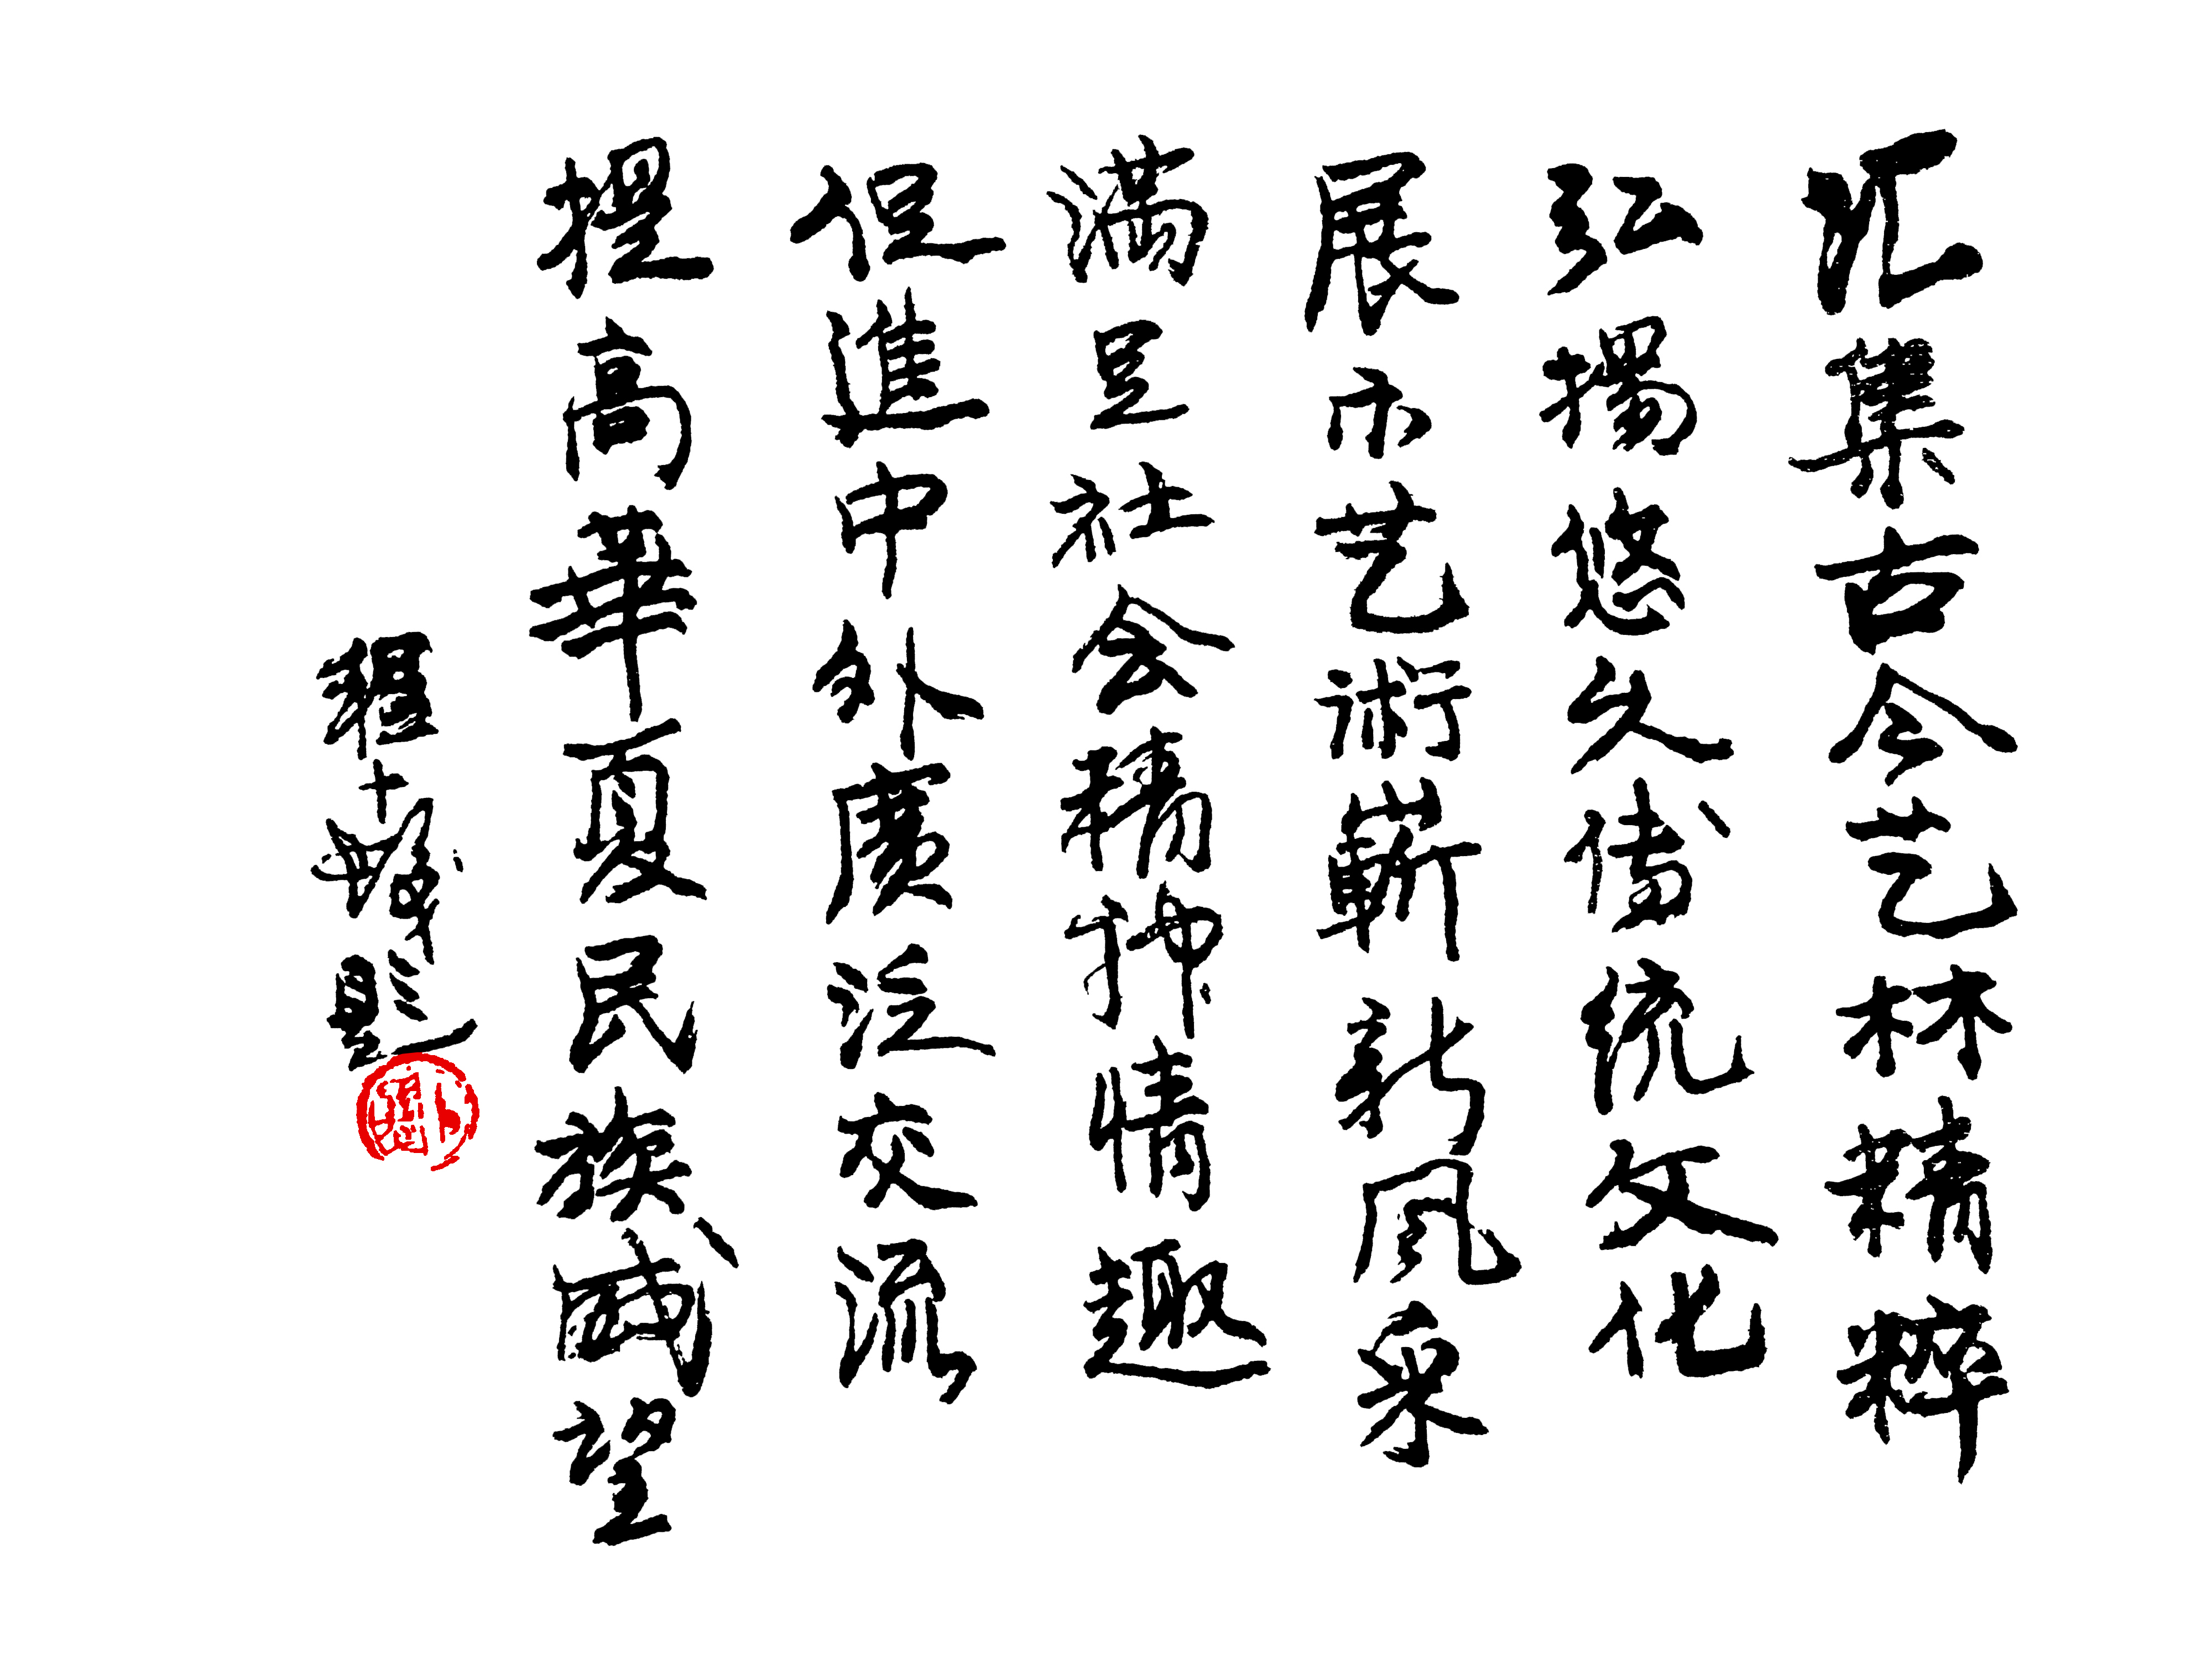 汇集古今艺林精粹
弘揚悠久传统文化
展示艺術嶄新风采
满足社会精神情趣
促進中外廣泛交流
提高華夏民族威望
程十发題